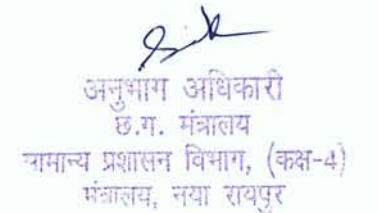 अनुभाग अधिकारी
छ.ग. मंत्रालय
सामान्य प्रशासन विभाग, (कक्ष-4)
मंत्रालय, नया रायपुर